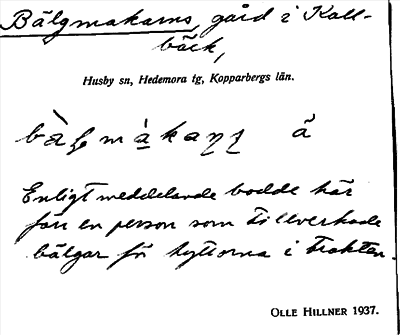 Bälgmakarns, gård i Kall-
bäck,
Husby sn, Hedemora tg, Kopparbergs län.
å
Enligt meddelande bodde här
förr en person som tillverkade
bälgar för hyttorna i trakten.
OLLE HILLNER 1937.